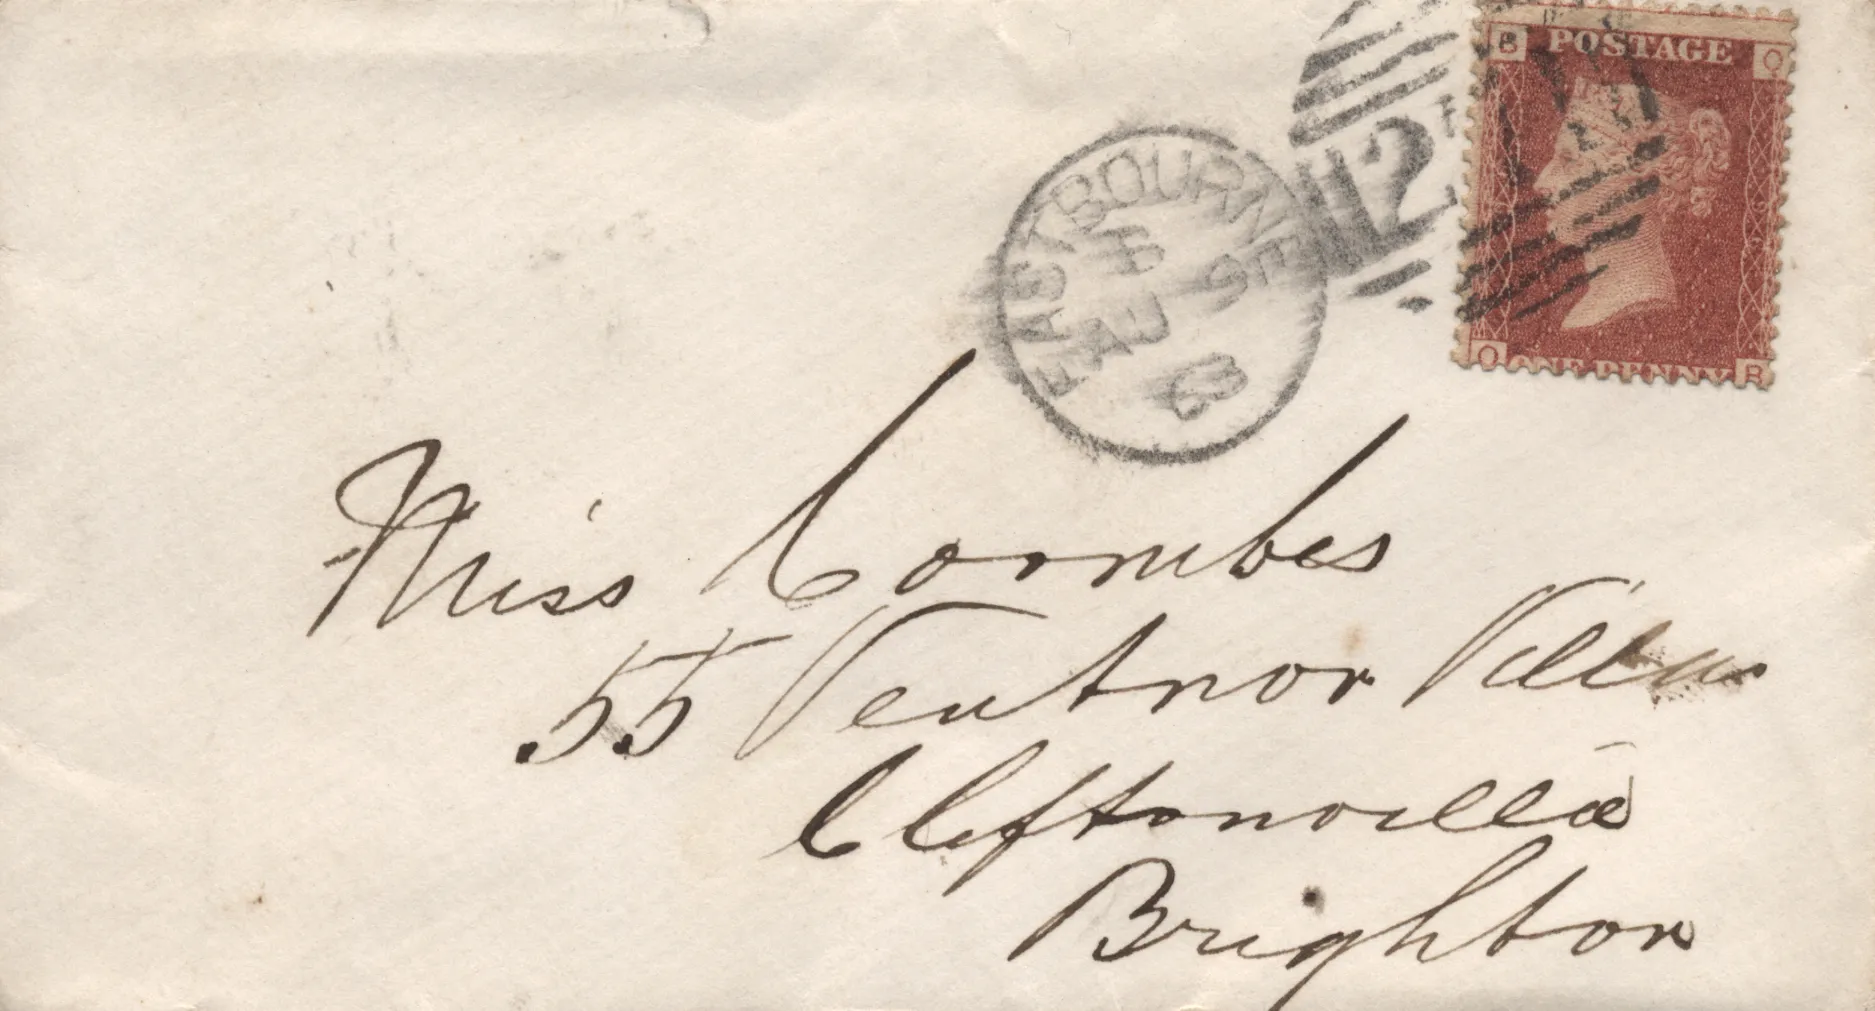 B POSTAGE Q
Q ONE PENNY B
EASTBOURNE
Miss Coombes
55 Ventnor Villas
Cliftonville
Brighton